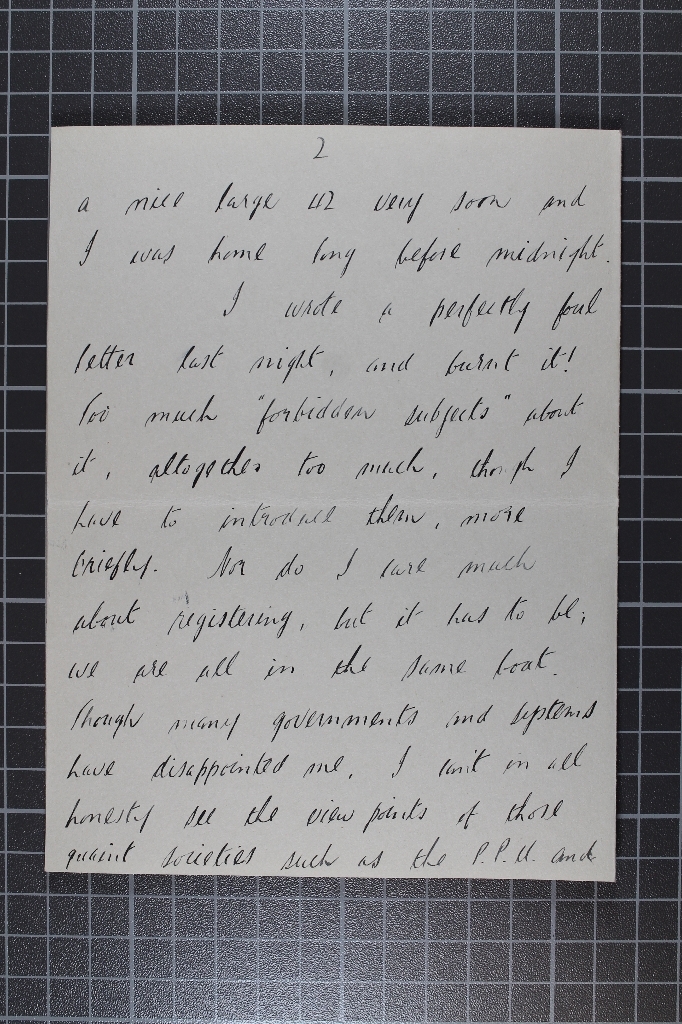 2
a nice large 42 very soon and
I was home long before midnight.
I wrote a perfectly foul
letter last night, and burnt it!
Too much "forbidden subjects" about
it, altogether too much, though I
have to introduce them, more
briefly. Nor do I care much
about registering, but it has to be;
we are all in the same boat.
Though many governments and systems
have disappointed me, I can't in all
honesty see the view points of those
quaint societies such as the P.P.U. and